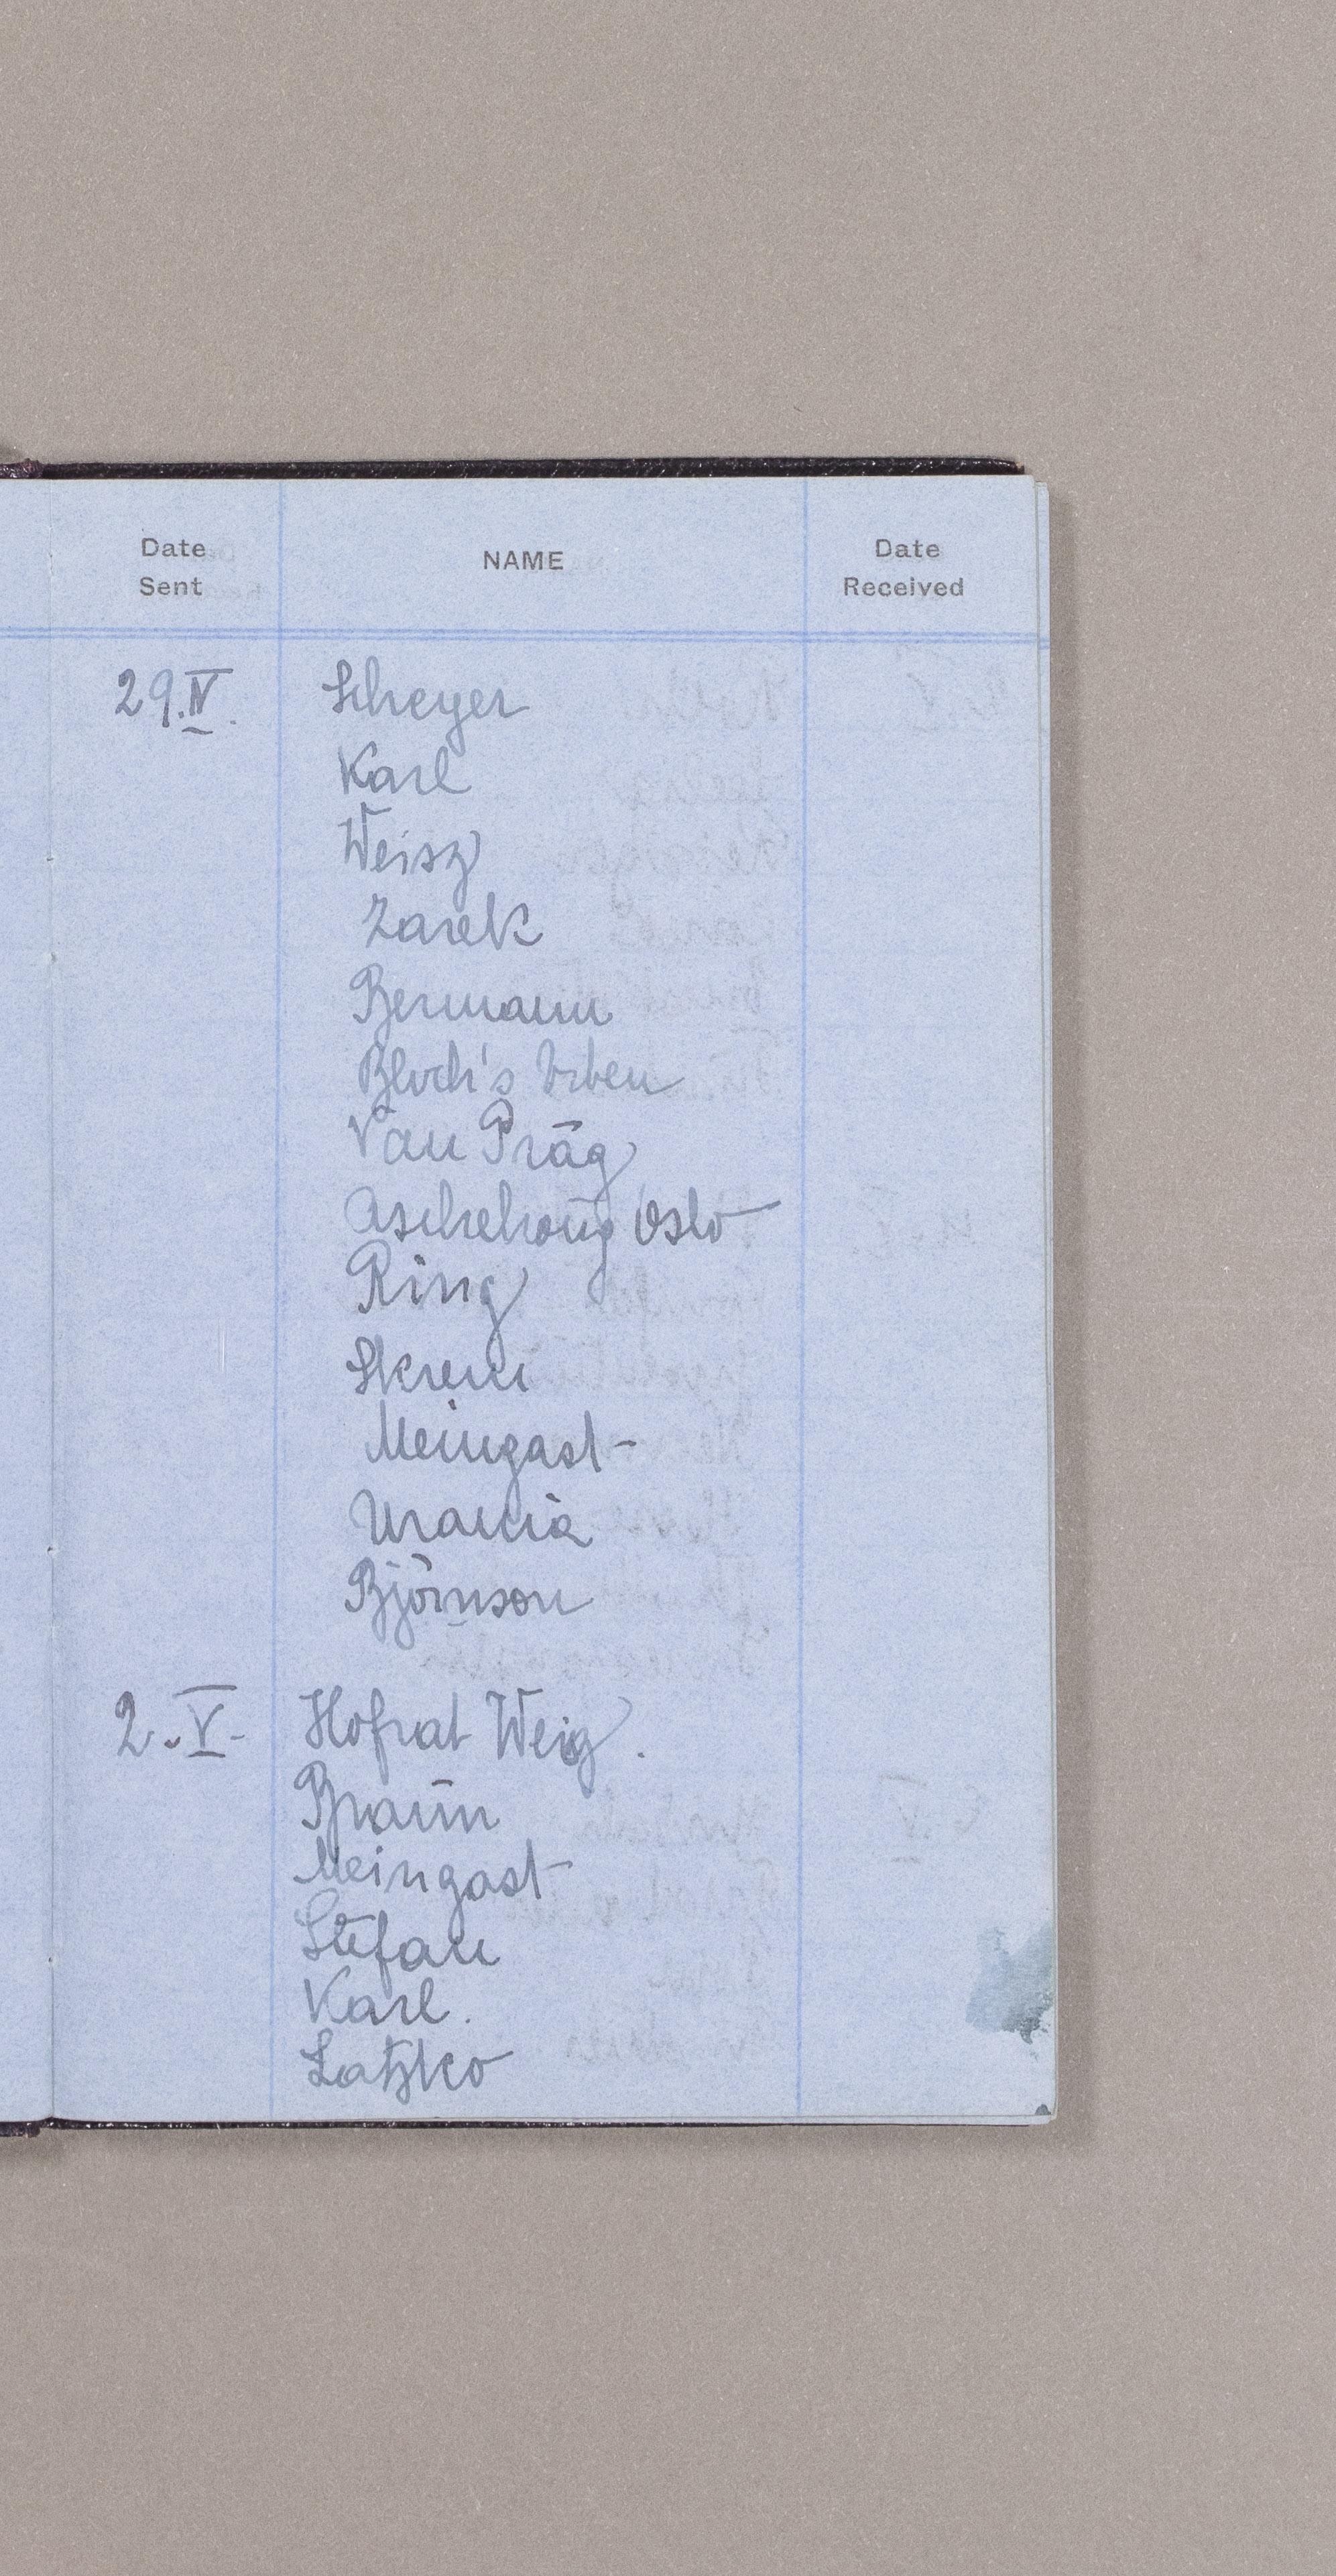 Date Sent NAME Date Received
29.IV. Scheyer
Karl
Weisz
Zarek
Bermann
Bloch's Erben
Van Präg
Aschehoug Oslo
Ring
Skrem
Meingast
Urania
Björnson
2.V. Hofrat Weiß.
Braun
Meingast
Stefan
Karl.
Latzko